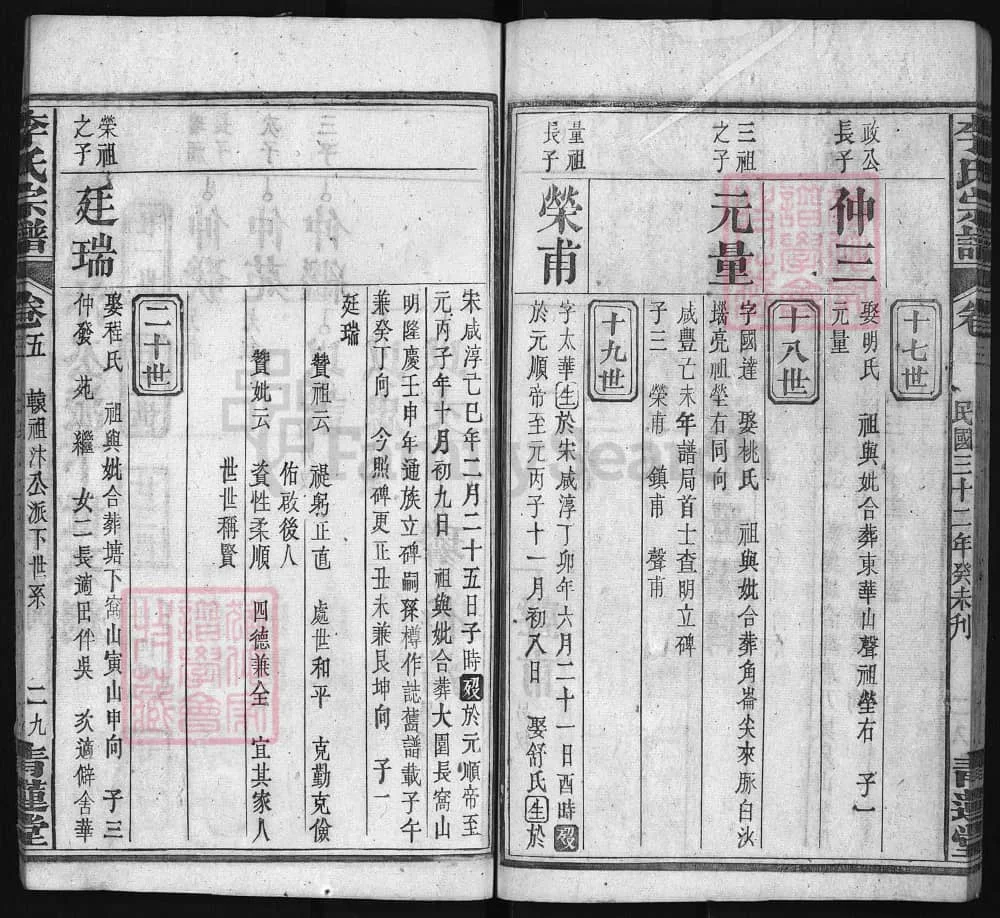 李氏宗譜
卷
民國三十二年癸未刊
青蓮堂
十七世
政公長子
仲三
娶明氏 祖與妣合葬東華山聲祖塋右 子一
元量
十八世
三祖之子
元量
字國達 娶桃氏 祖與妣合葬角崙尖來脈白沙
堖亮祖塋右同向
咸豐亡未年譜局首士查明立碑
子三 榮甫 鎮甫 聲甫
十九世
量祖長子
榮甫
字太華生於宋咸淳丁卯年六月二十一日酉時歿
於元順帝至元丙子十一月初入日 娶舒氏生於
宋咸淳己巳年二月二十五日子時歿於元順帝至
元丙子年十月初九日 祖與妣合葬大園長窩山
明隆慶壬申年通族立碑嗣孫樽作誌舊譜載子午
兼癸丁向 今照碑更正丑未兼艮坤向 子一
廷瑞
贊祖云 禔躬正直 處世和平 克勤克儉
佑啟後人
贊妣云 資性柔順 四德兼全 宜其家人
世世稱賢
二十世
榮祖之子
廷瑞
娶程氏 祖與妣合葬塘下窩山寅山申向 子三
仲發 苑 繼 女二長適田伴吳 次適僻舍華
李氏宗譜
卷五
轅祖汴公派下世系
二九
青蓮堂
FamilySearch